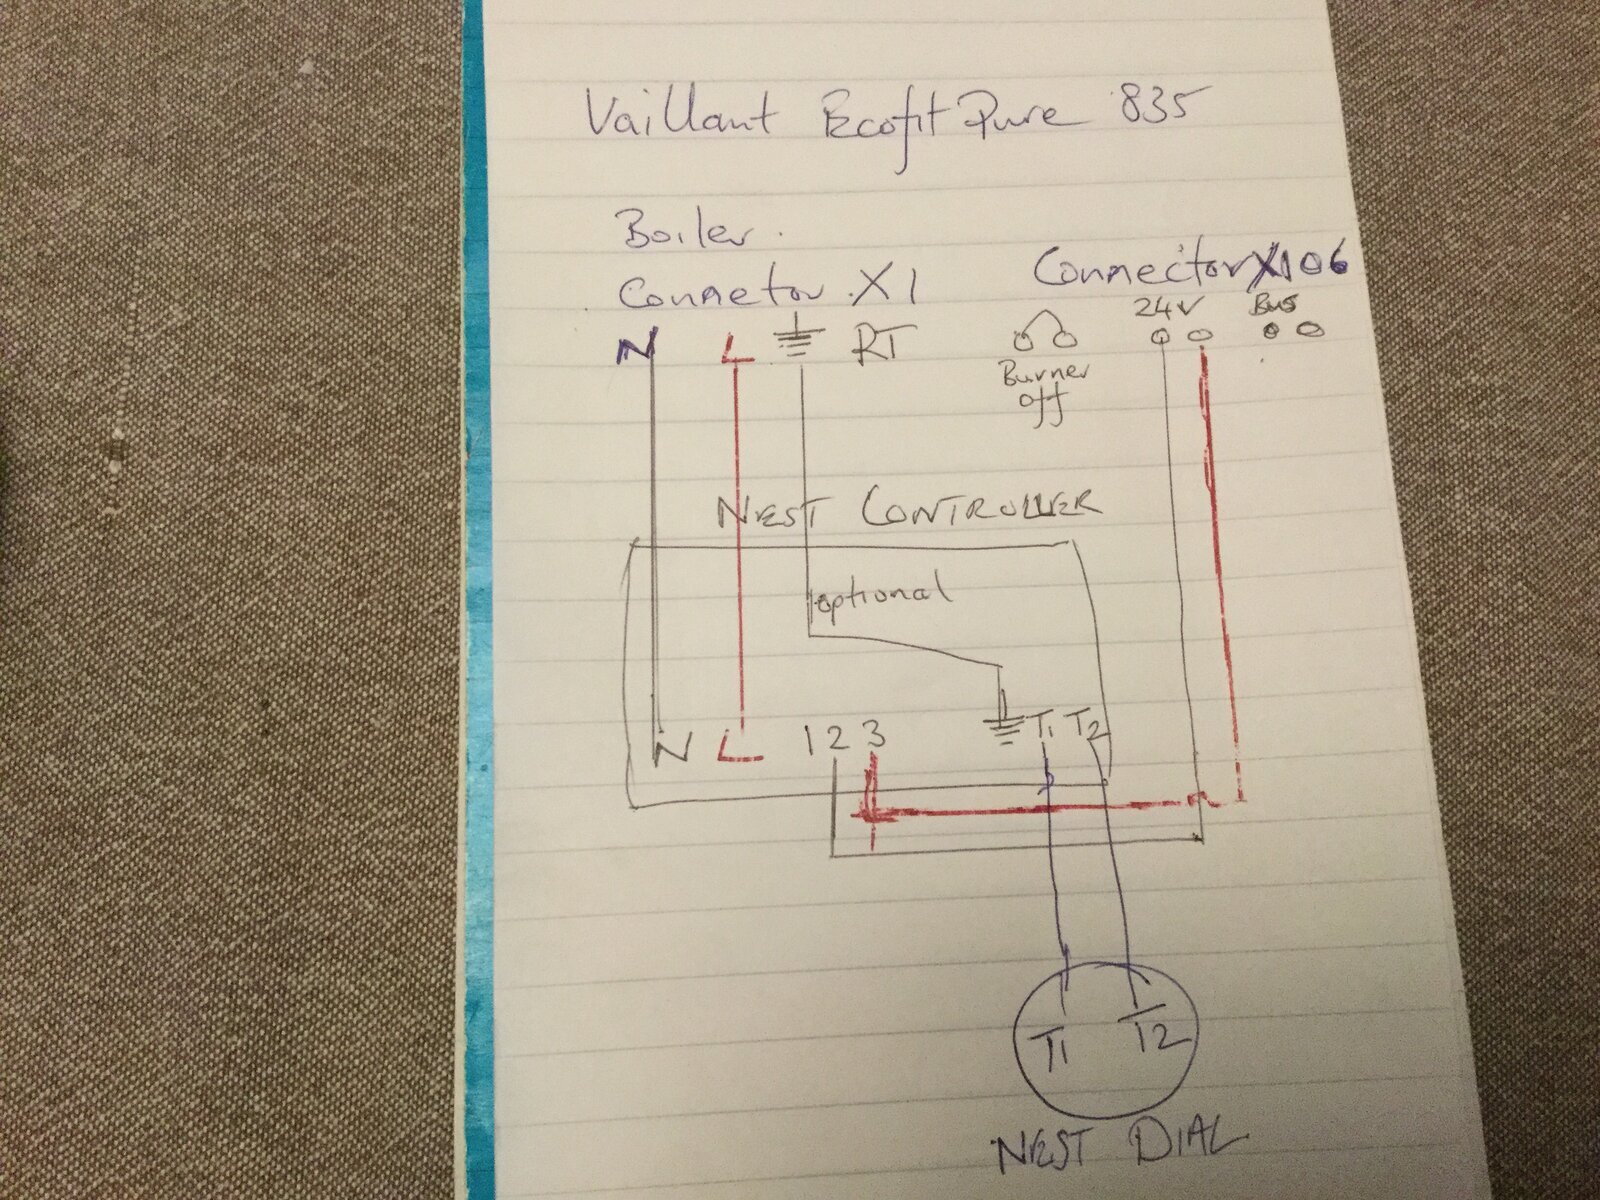 Vaillant Ecofit Pure 835
Boiler.
Connector X1
Connector X106
24V Bus
N L RT
Burner
off
NEST CONTROLLER
optional
N L 1 2 3 T1 T2
T1 T2
NEST DIAL